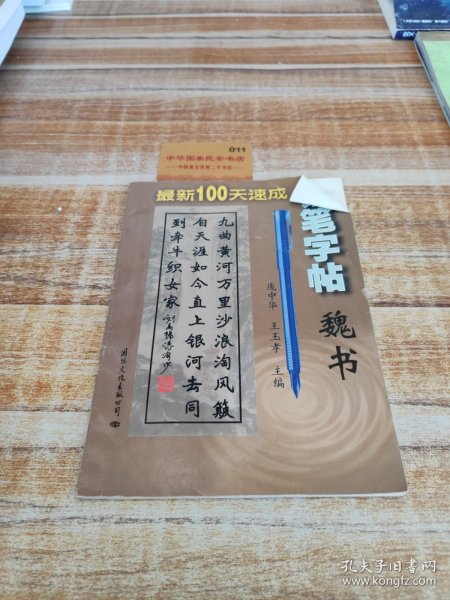 011
中华国泰民安书店
最新100天速成
笔字帖
魏书
庞中华 王玉孝 主编
九曲黄河万里沙浪淘风簸
自天涯如今直上银河去同
到牵牛织女家 刘禹锡浪淘沙
国际文化出版公司
孔夫子旧书网
www.kongfz.com